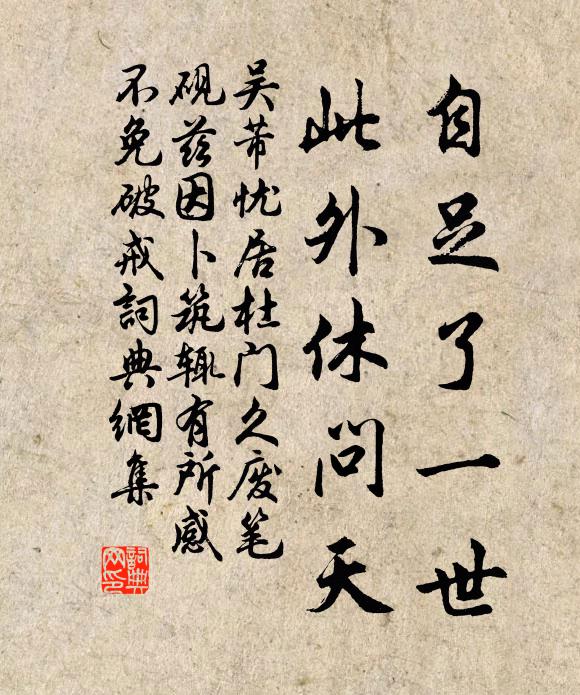 自足了一世
此外休问天
吴芾忧居杜门久废笔
砚兹因卜筑辄有所感
不免破戒詞典網集
詞典
网印